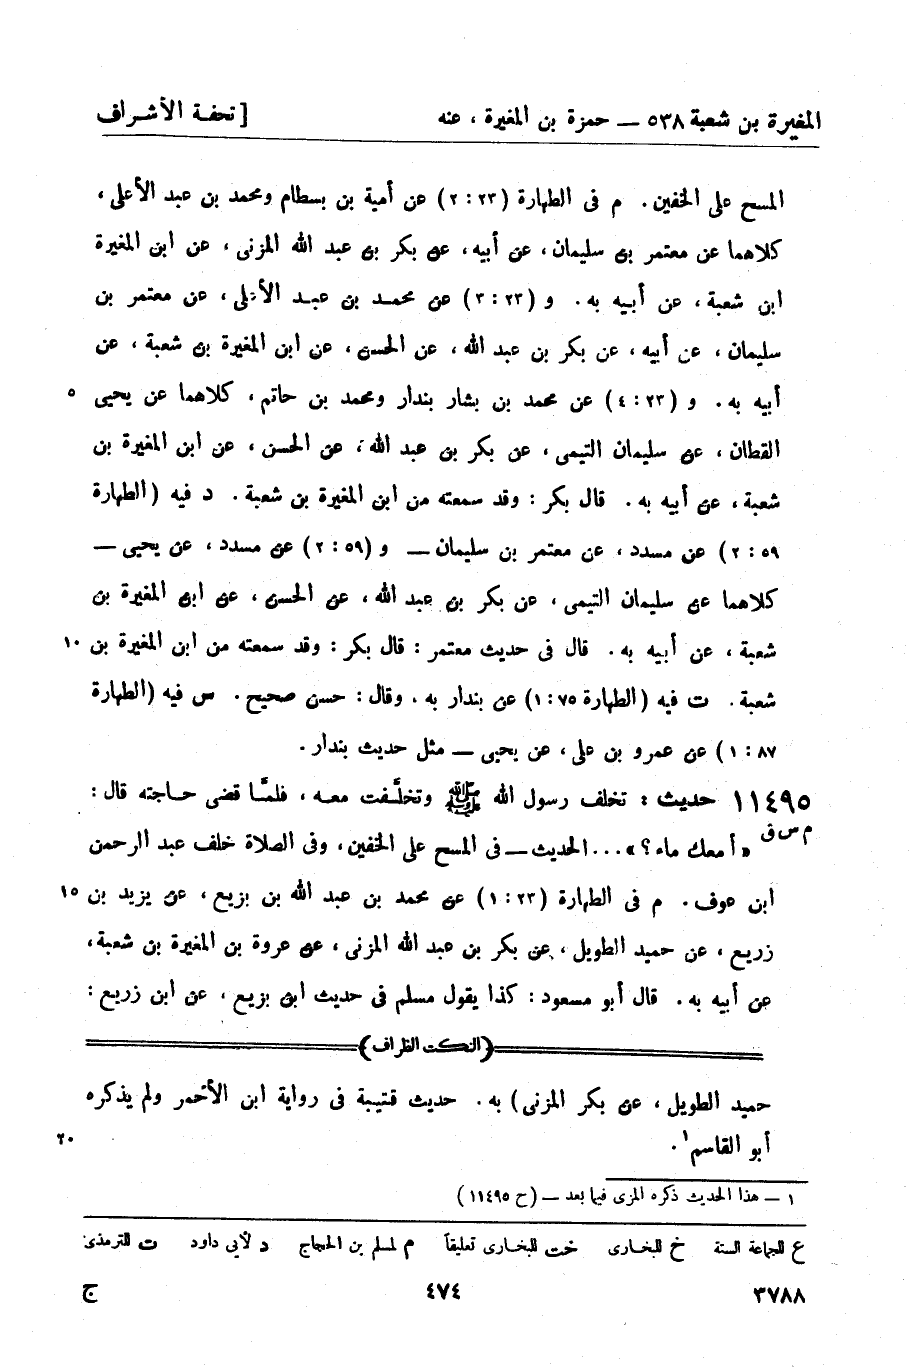 المغيرة بن شعبة ٥٣٨ — حمزة بن المغيرة ، عنه [ تحفة الأشراف
المسح على الخفين . م فى الطهارة (٢٣ : ٢) عن أمية بن بسطام ومحمد بن عبد الأعلى ،
كلاهما عن معتمر بن سليمان ، عن أبيه ، عن بكر بن عبد الله المزنى ، عن ابن المغيرة
ابن شعبة ، عن أبيه به . و (٢٣ : ٣) عن محمد بن عبد الأعلى ، عن معتمر بن
سليمان ، عن أبيه ، عن بكر بن عبد الله ، عن الحسن ، عن ابن المغيرة بن شعبة ، عن
أبيه به . و (٢٣ : ٤) عن محمد بن بشار بندار ومحمد بن حاتم ، كلاهما عن يحيى ٥
القطان ، عن سليمان التيمى ، عن بكر بن عبد الله ، عن الحسن ، عن ابن المغيرة بن
شعبة ، عن أبيه به . قال بكر : وقد سمعته من ابن المغيرة بن شعبة . د فيه (الطهارة
٥٩ : ٢) عن مسدد ، عن معتمر بن سليمان — و (٥٩ : ٢) عن مسدد ، عن يحيى —
كلاهما عن سليمان التيمى ، عن بكر بن عبد الله ، عن الحسن ، عن ابن المغيرة بن
شعبة ، عن أبيه به . قال فى حديث معتمر : قال بكر : وقد سمعته من ابن المغيرة بن ١٠
شعبة . ت فيه (الطهارة ٧٥ : ١) عن بندار به . وقال : حسن صحيح . س فيه (الطهارة
٨٧ : ١) عن عمرو بن على ، عن يحيى — مثل حديث بندار .
١١٤٩٥ حديث : تخلف رسول الله ﷺ وتخلَّفت معه ، فلمَّا قضى حاجته قال :
م س ق «أمعك ماء؟» ... الحديث — فى المسح على الخفين ، وفى الصلاة خلف عبد الرحمن
ابن عوف . م فى الطهارة (٢٣ : ١) عن محمد بن عبد الله بن بزيع ، عن يزيد بن ١٥
زريع ، عن حميد الطويل ، عن بكر بن عبد الله المزنى ، عن عروة بن المغيرة بن شعبة ،
عن أبيه به . قال أبو مسعود : كذا يقول مسلم فى حديث ابن بزيع ، عن ابن زريع :
(النكت الظراف)
حميد الطويل ، عن بكر المزنى) به . حديث قتيبة فى رواية ابن الأحمر ولم يذكره
أبو القاسم ١ . ٢٠
١ — هذا الحديث ذكره المزى فيما بعد — (ح ١١٤٩٥)
ع للجماعة الستة خ للبخارى خت للبخارى تعليقاً م لمسلم بن الحجاج د لأبى داود ت للترمذى
٣٧٨٨ ٤٧٤ ج